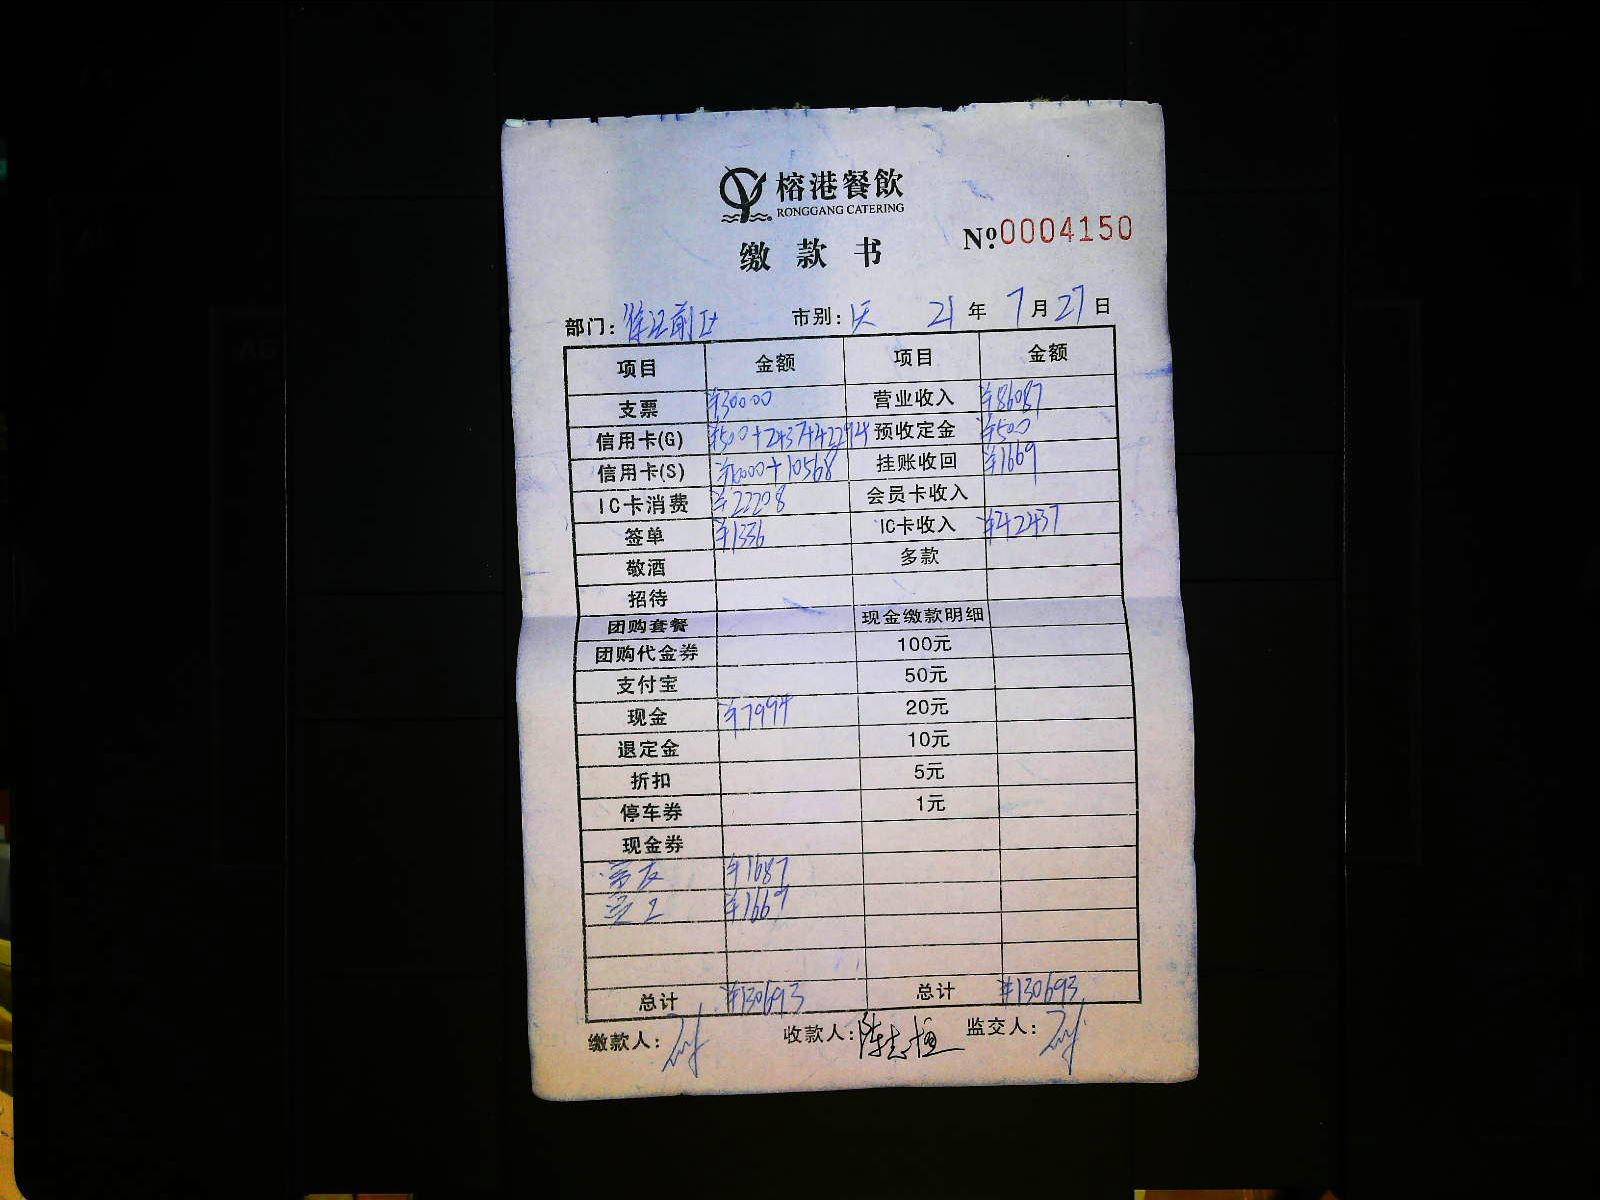 榕港餐飲
RONGGANG CATERING
缴款书
№0004150
部门： 市别： 21年7月27日
项目 金额 项目 金额
支票 ¥30000 营业收入 ¥86087
信用卡(G) ¥500+2437+42294 预收定金 ¥500
信用卡(S) ¥10000+10568 挂账收回 ¥1669
IC卡消费 ¥22208 会员卡收入
签单 ¥1336 IC卡收入 ¥42437
敬酒 多款
招待
团购套餐 现金缴款明细
团购代金券 100元
支付宝 50元
现金 ¥7994 20元
退定金 10元
折扣 5元
停车券 1元
现金券
¥1687
¥1669
总计 ¥130693 总计 ¥130693
缴款人： 收款人： 监交人：